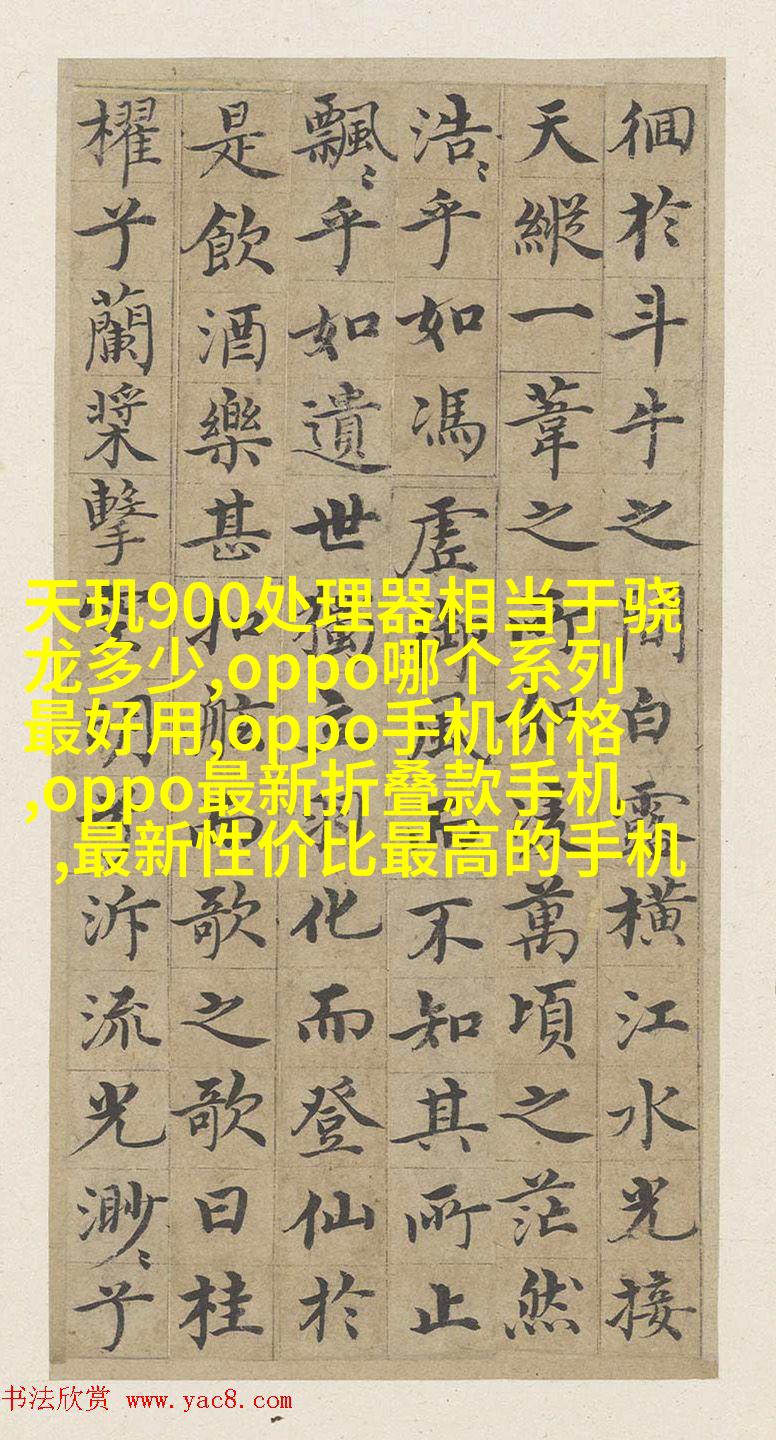 徊於斗牛之間白露橫江水光接
天縱一葦之所如凌萬頃之茫然
浩〻乎如馮虛御風而不知其所止
飄〻乎如遺世獨立羽化而登仙於
是飲酒樂甚扣舷而歌之歌曰桂
櫂兮蘭槳擊空明兮泝流光渺〻兮
天玑900处理器相当于骁
龙多少,oppo哪个系列
最好用,oppo手机价格
,oppo最新折叠款手机
,最新性价比最高的手机
书法欣赏 www.yac8.com